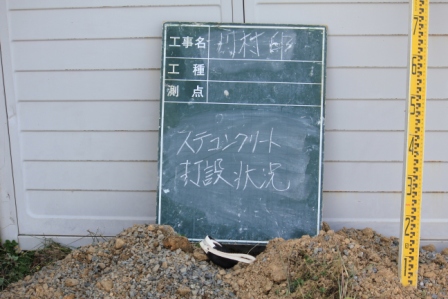 工事名 村邸
工種
測点
ステコンクリート
打設状況